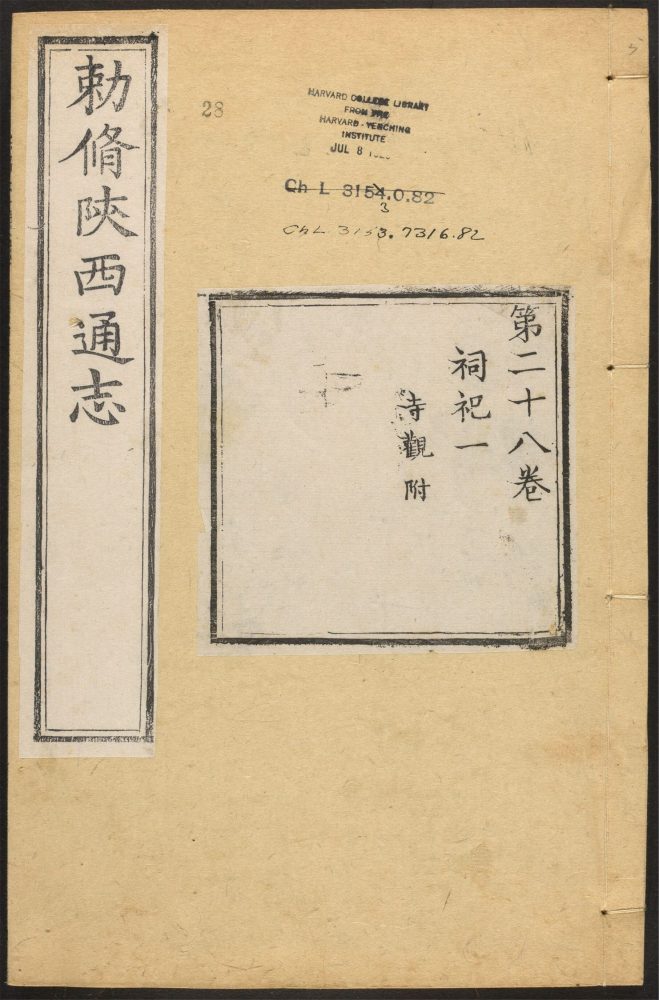 勅脩陝西通志
28
HARVARD COLLEGE LIBRARY
FROM THE
HARVARD-YENCHING
INSTITUTE
JUL 8
Ch L 3154.0.82
3
Ch L 3153.7316.82
第二十八卷
祠祀一
寺觀附